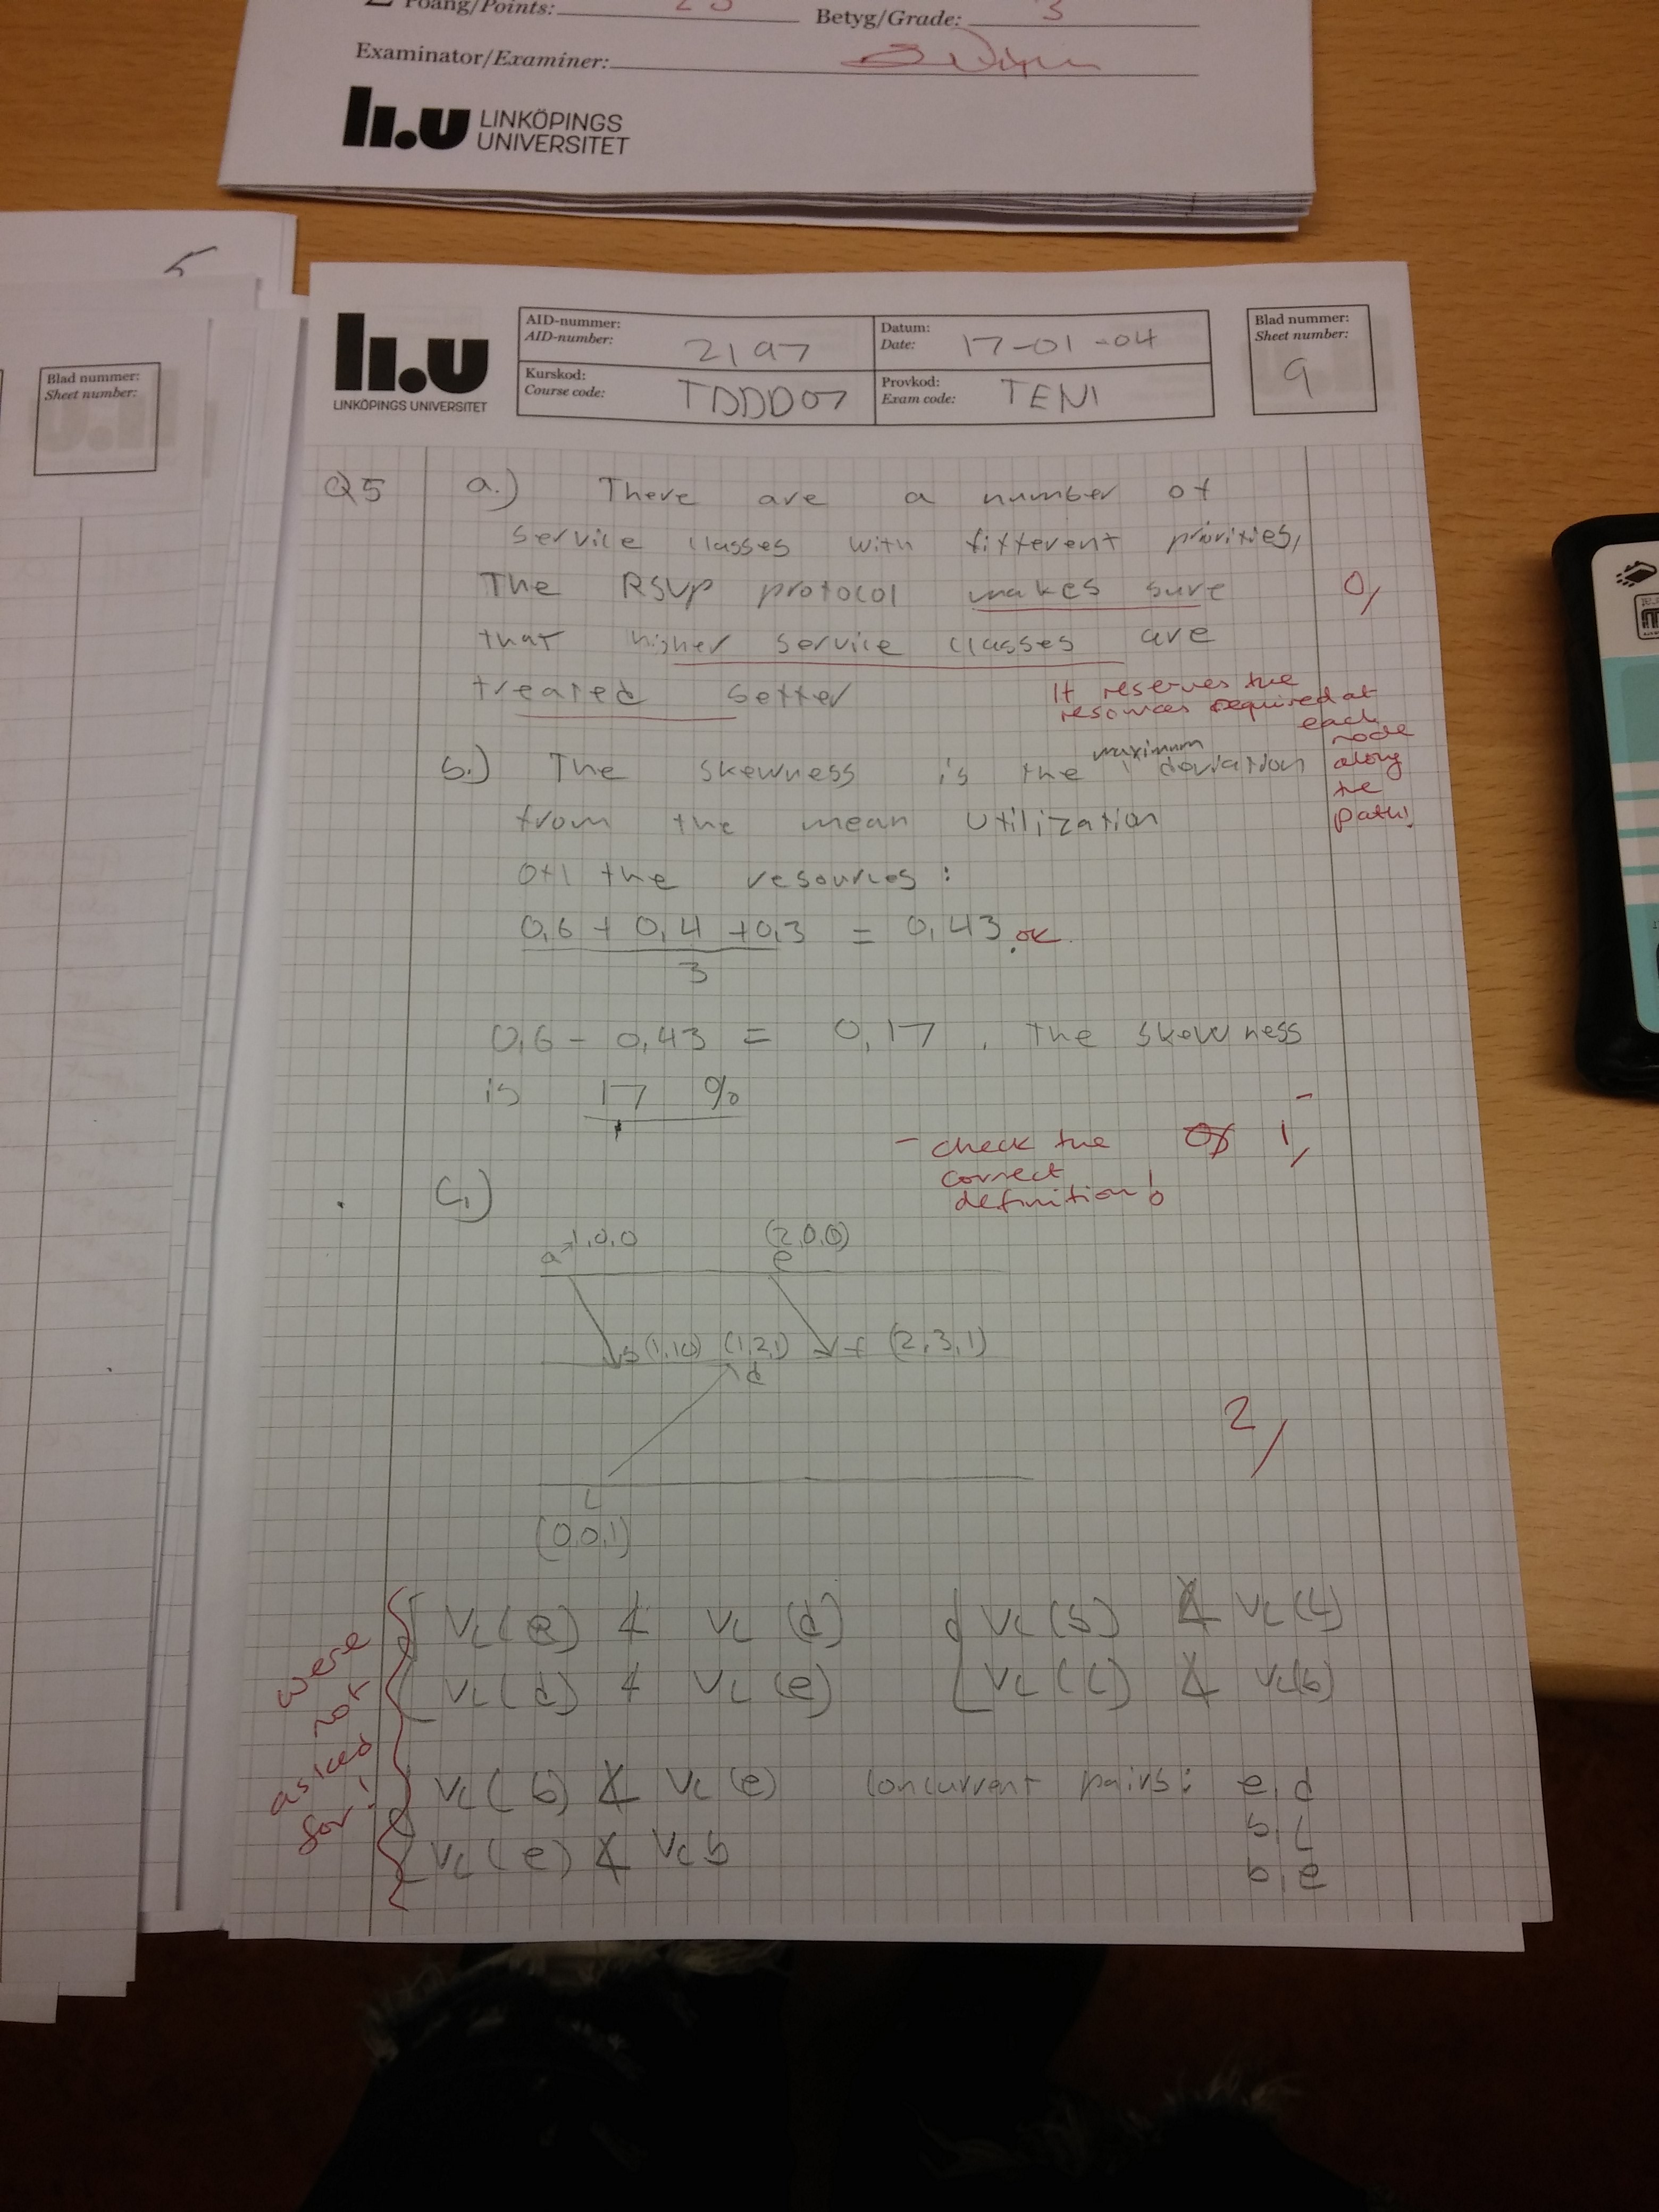 Poäng/Points: 25
Betyg/Grade: 3
Examinator/Examiner:
li.u LINKÖPINGS
UNIVERSITET
5
Blad nummer:
Sheet number:
li.u
LINKÖPINGS UNIVERSITET
AID-nummer:
AID-number:
2197
Datum:
Date:
17-01-04
Kurskod:
Course code:
TDDD07
Provkod:
Exam code:
TEN1
Blad nummer:
Sheet number:
9
Q5 a.) There are a number of
service classes with different priorities,
The RSVP protocol makes sure
0/
that higher service classes are
treated better
It reserves the
resources required at
each
node
along
the
path!
b.) The skewness is the maximum deviation
from the mean utilization
of the resources:
0,6 + 0,4 + 0,3 = 0,43 ok.
3
0,6 - 0,43 = 0,17 . The skewness
is 17 %
- check the
correct
definition!
1/
C.)
a 1,0,0
(2,0,0)
e
b (1,1,0) (1,2,1) f (2,3,1)
d
2/
c
(0,0,1)
VC(e) ≮ VC(d) VC(b) ≮ VC(c)
VC(d) ≮ VC(e) VC(c) ≮ VC(b)
VC(b) ≮ VC(e) Concurrent pairs: e,d
b,c
VC(e) ≮ VC b
b,e
were
not
asked
for!